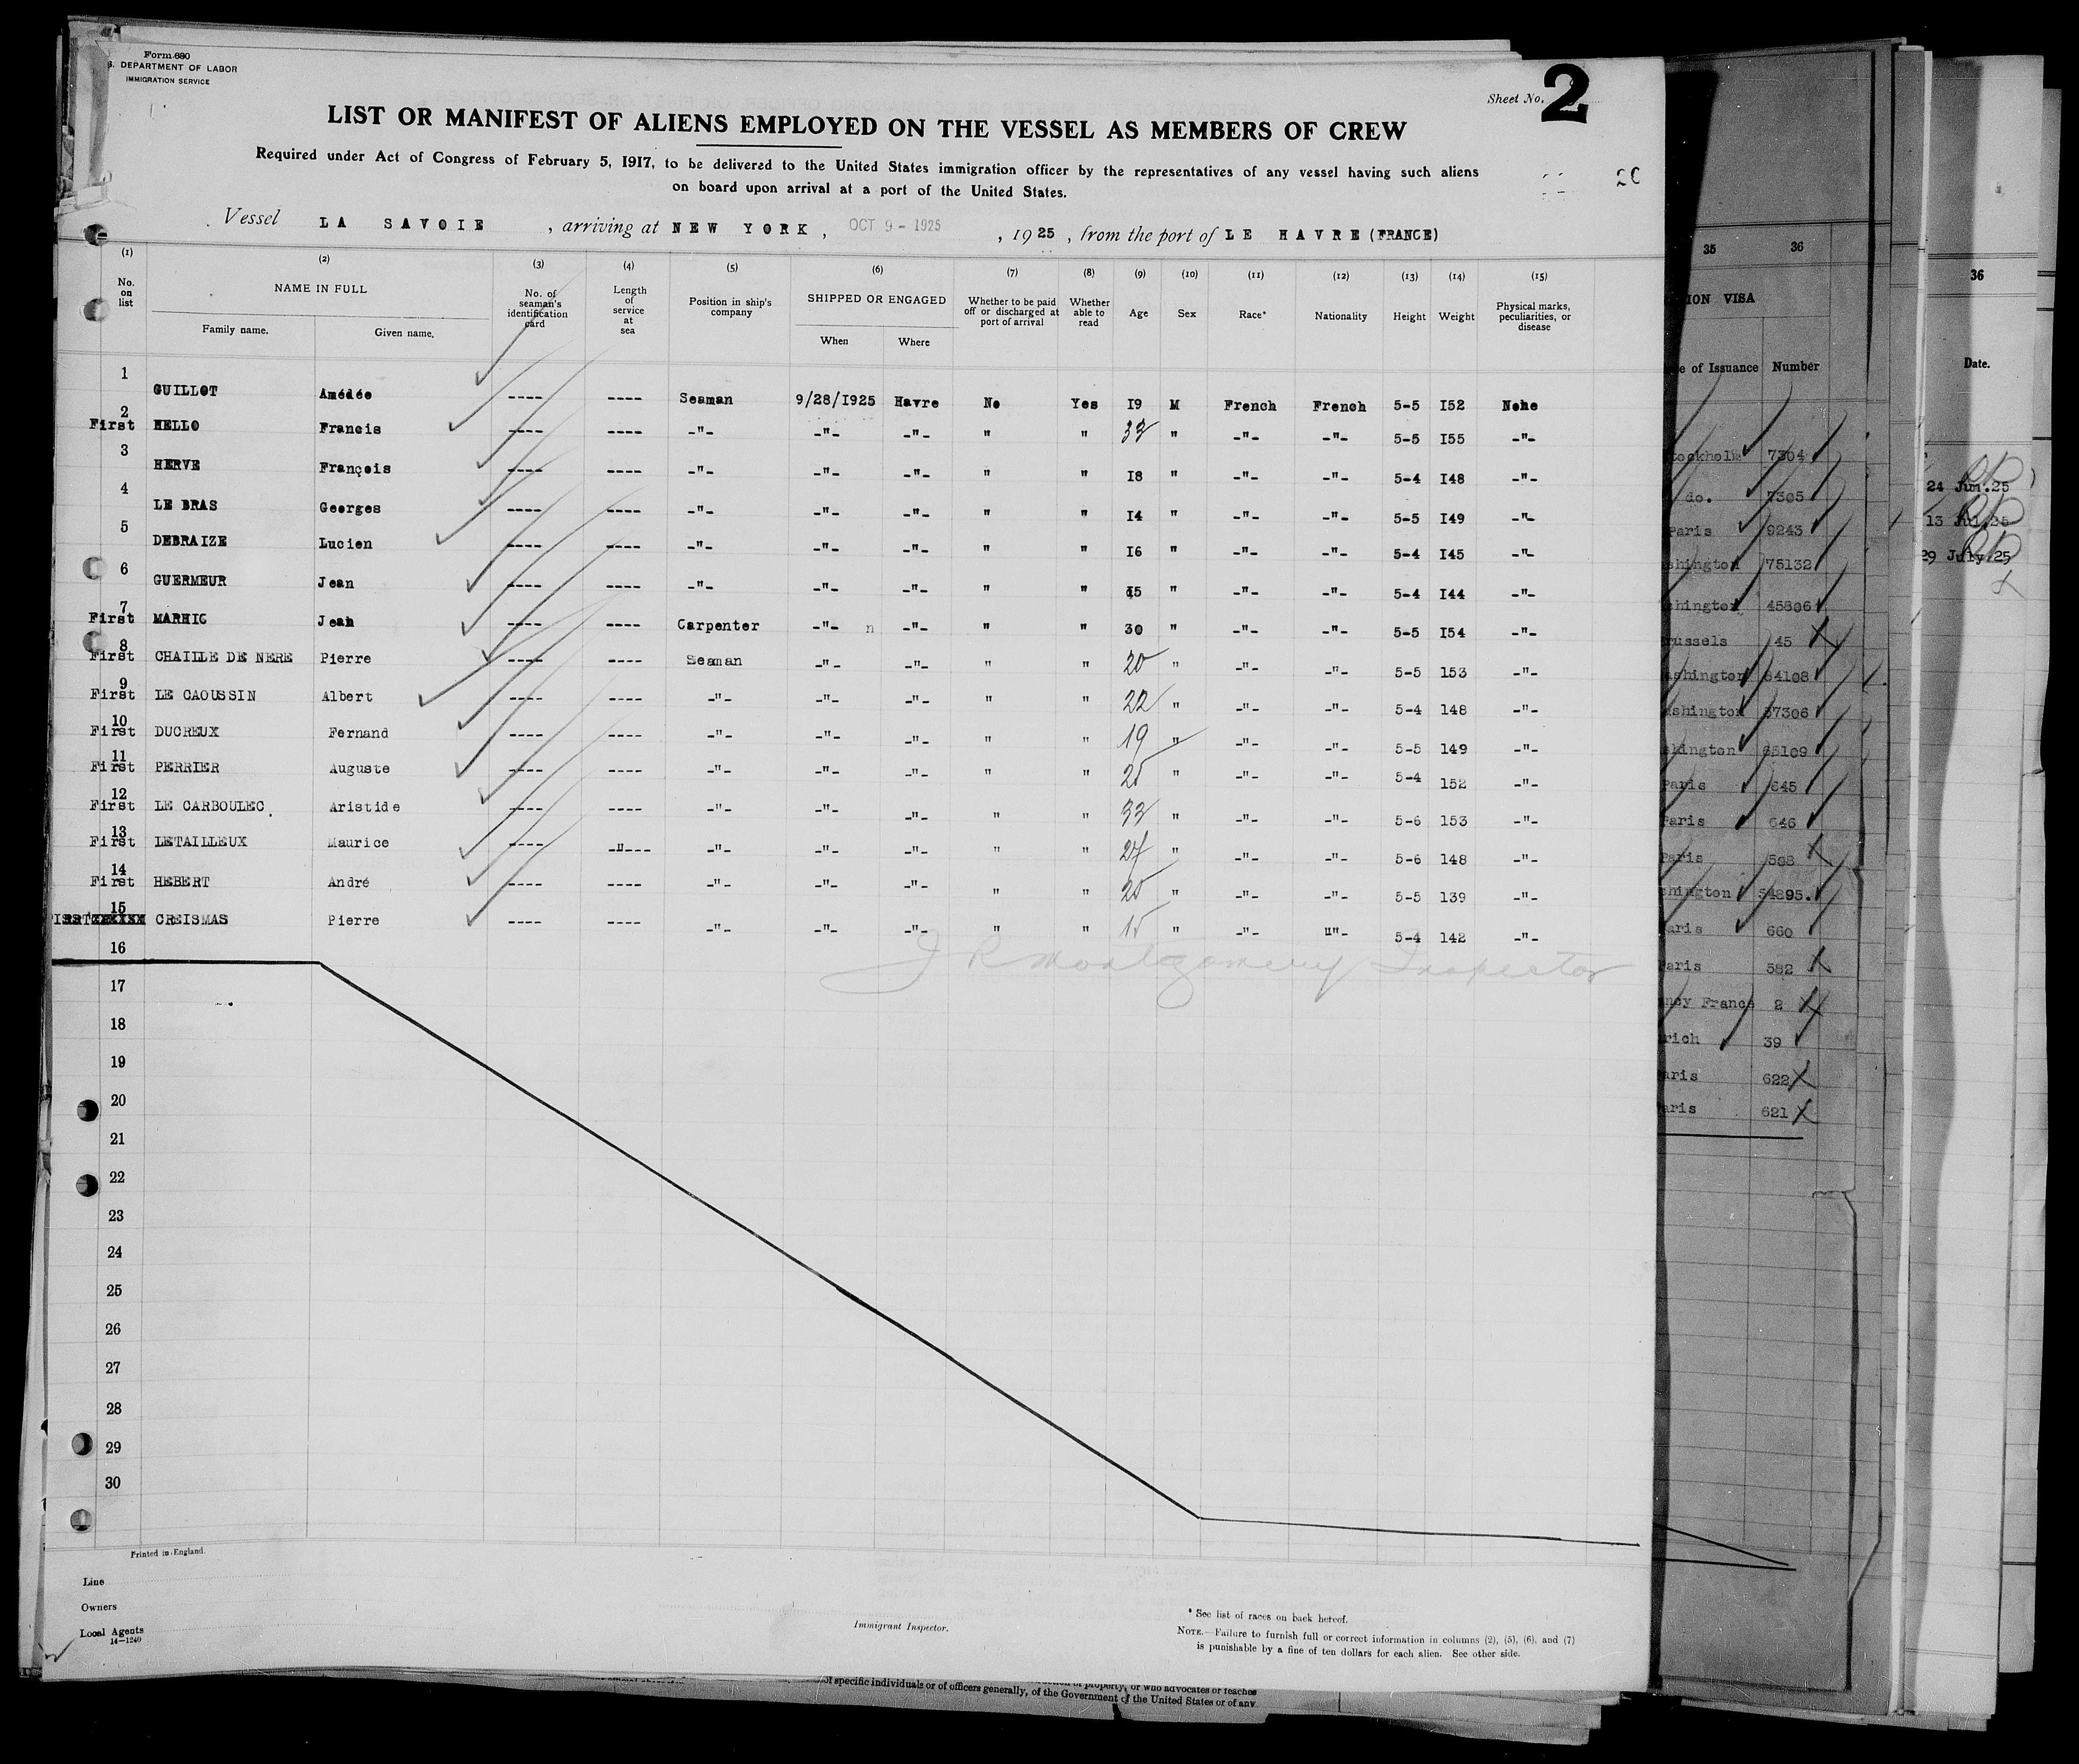 Form 680
S. DEPARTMENT OF LABOR
IMMIGRATION SERVICE
Sheet No. 2
LIST OR MANIFEST OF ALIENS EMPLOYED ON THE VESSEL AS MEMBERS OF CREW
Required under Act of Congress of February 5, 1917, to be delivered to the United States immigration officer by the representatives of any vessel having such aliens
on board upon arrival at a port of the United States.
Vessel LA SAVOIE , arriving at NEW YORK, OCT 9 - 1925 , 1925 , from the port of LE HAVRE (FRANCE)
(1) (2) (3) (4) (5) (6) (7) (8) (9) (10) (11) (12) (13) (14) (15)
No. on list NAME IN FULL Family name. Given name. No. of seaman's identification card Length of service at sea Position in ship's company SHIPPED OR ENGAGED When Where Whether to be paid off or discharged at port of arrival Whether able to read Age Sex Race* Nationality Height Weight Physical marks, peculiarities, or disease
1 GUILLOT Amédée ---- ---- Seaman 9/28/1925 Havre No Yes 19 M French French 5-5 152 None
2 First HELLO Francis ---- ---- -"- -"- -"- " " " -"- -"- 5-5 155 -"-
3 HERVE François ---- ---- -"- -"- -"- " " 18 " -"- -"- 5-4 148 -"-
4 LE BRAS Georges ---- ---- -"- -"- -"- " " 14 " -"- -"- 5-5 149 -"-
5 DEBRAIZE Lucien ---- ---- -"- -"- -"- " " 16 " -"- -"- 5-4 145 -"-
6 GUERMEUR Jean ---- ---- -"- -"- -"- " " 15 " -"- -"- 5-4 144 -"-
7 First MARHIC Jean ---- ---- Carpenter -"- n -"- " " 30 " -"- -"- 5-5 154 -"-
8 First CHAILLE DE NERE Pierre ---- ---- Seaman -"- -"- " " 20 " -"- -"- 5-5 153 -"-
9 First LE CAOUSSIN Albert ---- ---- -"- -"- -"- " " 22 " -"- -"- 5-4 148 -"-
10 First DUCREUX Fernand ---- ---- -"- -"- -"- " " 19 " -"- -"- 5-5 149 -"-
11 First PERRIER Auguste ---- ---- -"- -"- -"- " " 25 " -"- -"- 5-4 152 -"-
12 First LE CARBOULEC Aristide ---- ---- -"- -"- -"- " " " -"- -"- 5-6 153 -"-
13 First LETAILLEUX Maurice ---- -"--- -"- -"- -"- " " " -"- -"- 5-6 148 -"-
14 First HEBERT André ---- ---- -"- -"- -"- " " 20 " -"- -"- 5-5 139 -"-
15 CREISMAS Pierre ---- ---- -"- -"- -"- " " 15 " -"- ""- 5-4 142 -"-
J R Montgomery Inspector
16
17
18
19
20
21
22
23
24
25
26
27
28
29
30
Printed in England.
Line
Owners
Local Agents
14-1240
Immigrant Inspector.
* See list of races on back hereof.
NOTE.—Failure to furnish full or correct information in columns (2), (5), (6), and (7)
is punishable by a fine of ten dollars for each alien. See other side.
of specific individuals or of officers generally, of the Government of the United States or of any
property, or who advocates or teaches
35 36
ION VISA
e of Issuance Number
tockholm 7304
do. 7305
Paris 9243
shington 75132
shington 45806
russels 45
ashington 64108
ashington 57306
shington 65109
Paris 645
Paris 646
Paris 568
shington 54895.
aris 660
Paris 582
ncy France 2
rich 39
aris 622
aris 621
36
Date.
24 Jun.25
13 Jul.25
29 July.25